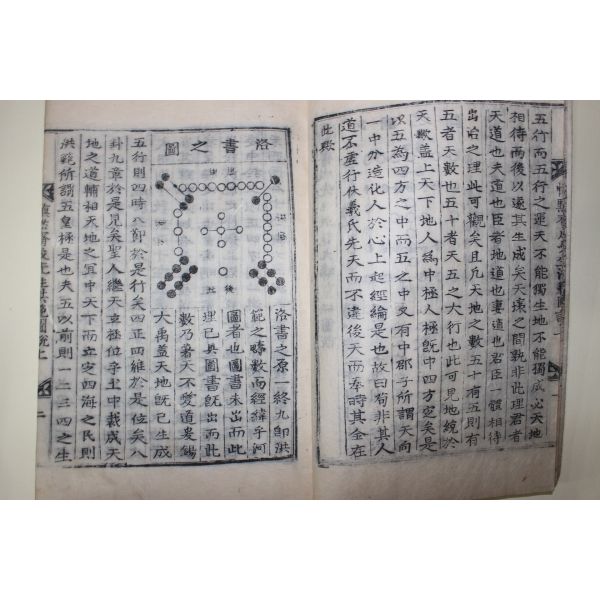 五行而五行之運天不能獨生地不能獨成必天地
相待而後以遂其生成矣天壤之間孰非此理君者
天道也夫道也臣者地道也妻道也君臣一體相待
出治之理此可觀矣且凡天地之數五十有五則有
五者天數也五十者天五之大行也此可見地統於
天歟盖上天下地人爲中極人極旣中四方定矣是
以五爲四方之中而五之中又有中邵子所謂天向
一中分造化人於心上起經綸是也故曰苟非其人
道不虛行伏羲氏先天而不違後天而奉時其全在
此歟
洛書之圖
洛書之原一終九卽洪
範之疇數而經緯乎河
圖者也圖書未出而此
理已具圖書旣出而此
數乃者天不愛道爰錫
大禹盖天地旣已生成
五行則四時八節於是行矣四正四維於是位矣八
卦九章於是見矣聖人繼天立極位乎其中裁成天
地之道輔相天地之宜中天下而立定四海之民則
洪範所謂五皇極是也夫五以前則一二三四之生